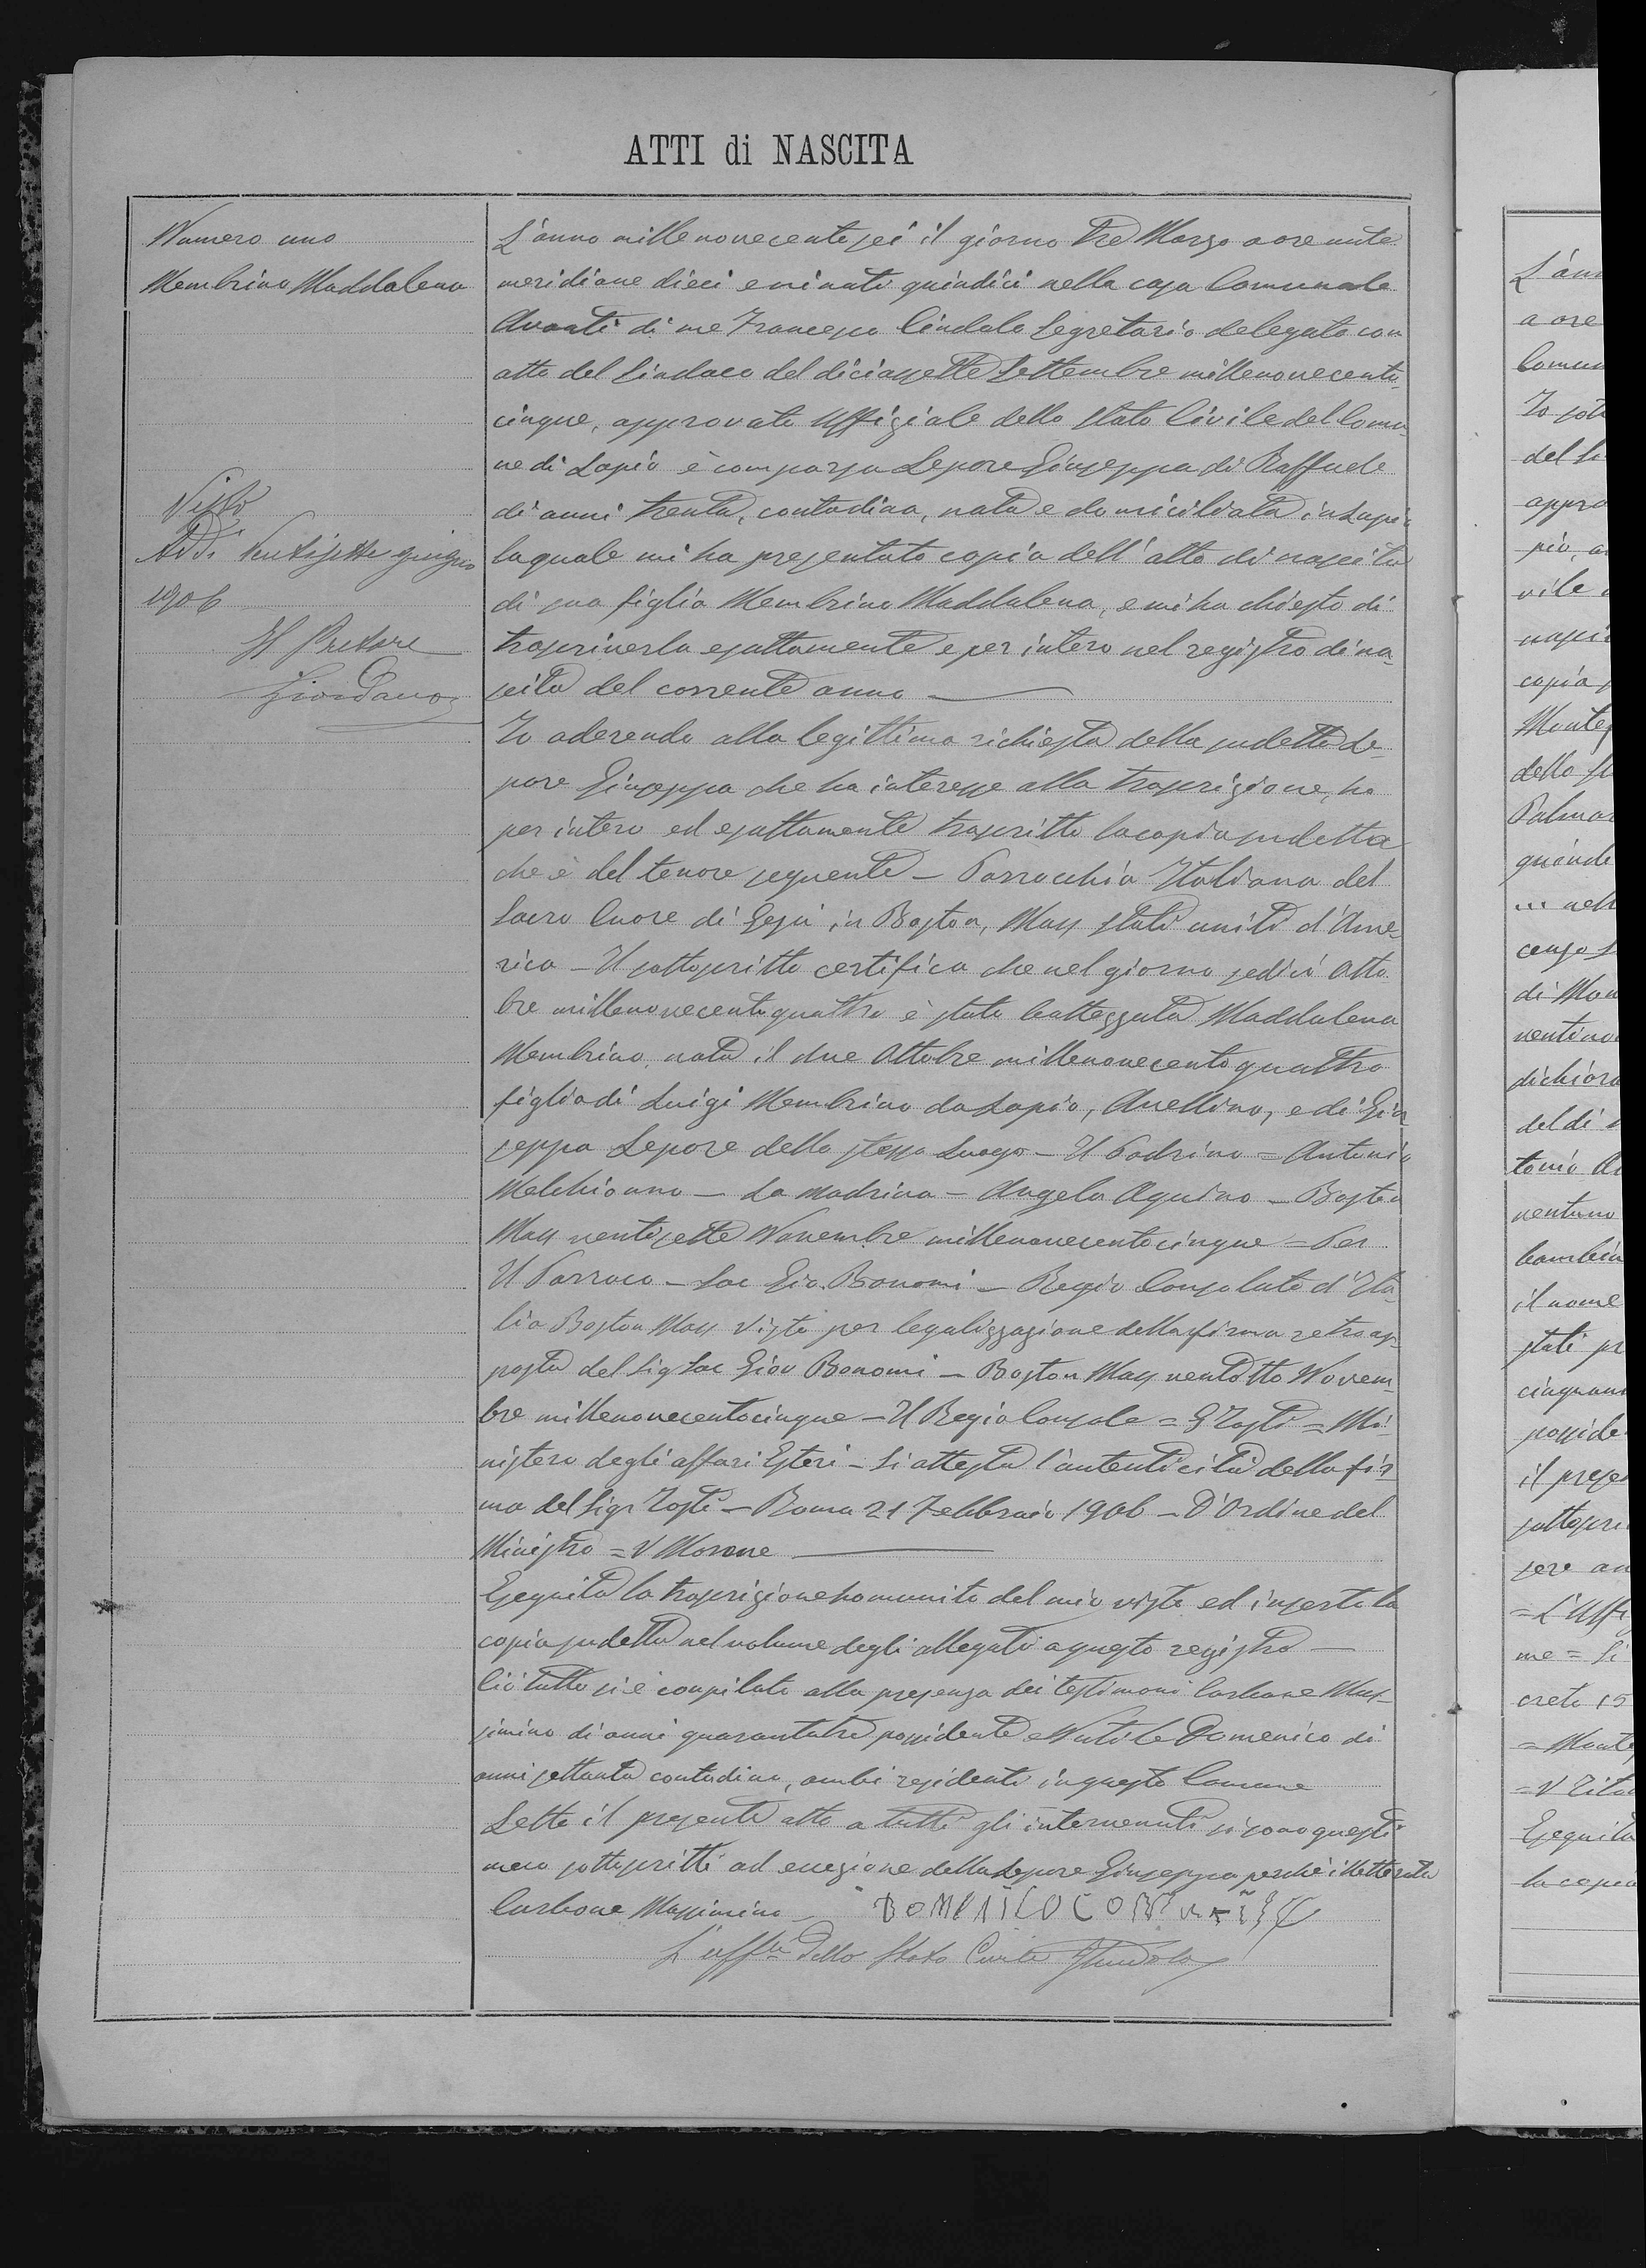 ATTI di NASCITA
Numero uno
Membrino Maddalena
Visto
Addì ventisette giugno
1906
Il Pretore
Giordano
L'anno millenovecentosei il giorno tre Marzo a ore ante
meridiane dieci e minuti quindici nella casa Comunale
Avanti di me Francesco Cindolo Segretario delegato con
atto del Sindaco del diciassette Settembre millenovecento-
cinque, approvato Uffiziale dello Stato Civile del Comu-
ne di Lapio è comparsa Lepore Giuseppa di Raffaele
di anni trenta, contadina, nata e domiciliata in Lapio
la quale mi ha presentato copia dell'atto di nascita
di sua figlia Membrino Maddalena, e mi ha chiesto di
trascriverla esattamente e per intero nel registro di na-
scita del corrente anno
Io aderendo alla legittima richiesta della sudetta Le-
pore Giuseppa che ha interesse alla trascrizione, ho
per intero ed esattamente trascritto la copia sudetta
che è del tenore seguente - Parrocchia Italiana del
Sacro Cuore di Gesù in Boston, Mass Stati uniti d'Ame-
rica - Il sottoscritto certifica che nel giorno sedici Otto
bre millenovecentoquattro è stata battezzata Maddalena
Membrino, nata il due Ottobre millenovecentoquattro
figlia di Luigi Membrino da Lapio, Avellino, e di Giu
seppa Lepore dello stesso Luogo - Il Padrino = Antonio
Melchionna - La Madrina - Angela Aquino - Boston
Mass ventisette Novembre millenovecentocinque = Per
Il Parroco - Sac Gio. Bonomi - Regio Consolato d'Ita-
lia Boston Mass Visto per legalizzazione della firma retroap-
posta del Sig Sac Giov Bonomi - Boston Mass ventotto Novem-
bre millenovecentocinque - Il Regio Console = G Tosti = Mi-
nistero degli affari Esteri - Si attesta l'autenticità della fir
ma del Sigr Tosti - Roma 21 Febbraio 1906 - D'Ordine del
Ministro = V Morone
Eseguita la trascrizione ho munito del mio visto ed inserto la
copia sudetta nel volume degli allegati a questo registro -
Ciò tutto si è compilato alla presenza dei testimoni Carbone Mas-
simino di anni quarantatre possidente e Nutile Domenico di
anni settanta contadino, ambi residenti in questo Comune
Letto il presente atto a tutti gli intervenuti si sono questi
meco sottoscritti ad eccezione della Lepore Giuseppa perchè illetterata
Carbone Massimino
L'uffle dello Stato Civile FCindolo
L'ann
a ore
Comun
del Si
appro
pio, a
vile
copia
dello
Palmar
quinde
... nell
di Mon
dichiara
del di
tonio
ventuno
bambin
il nome
cinquant
posside
il prese
sottoscri
= L'Uffi
me = Si
creto 15
= Monte
Eseguita
la copia